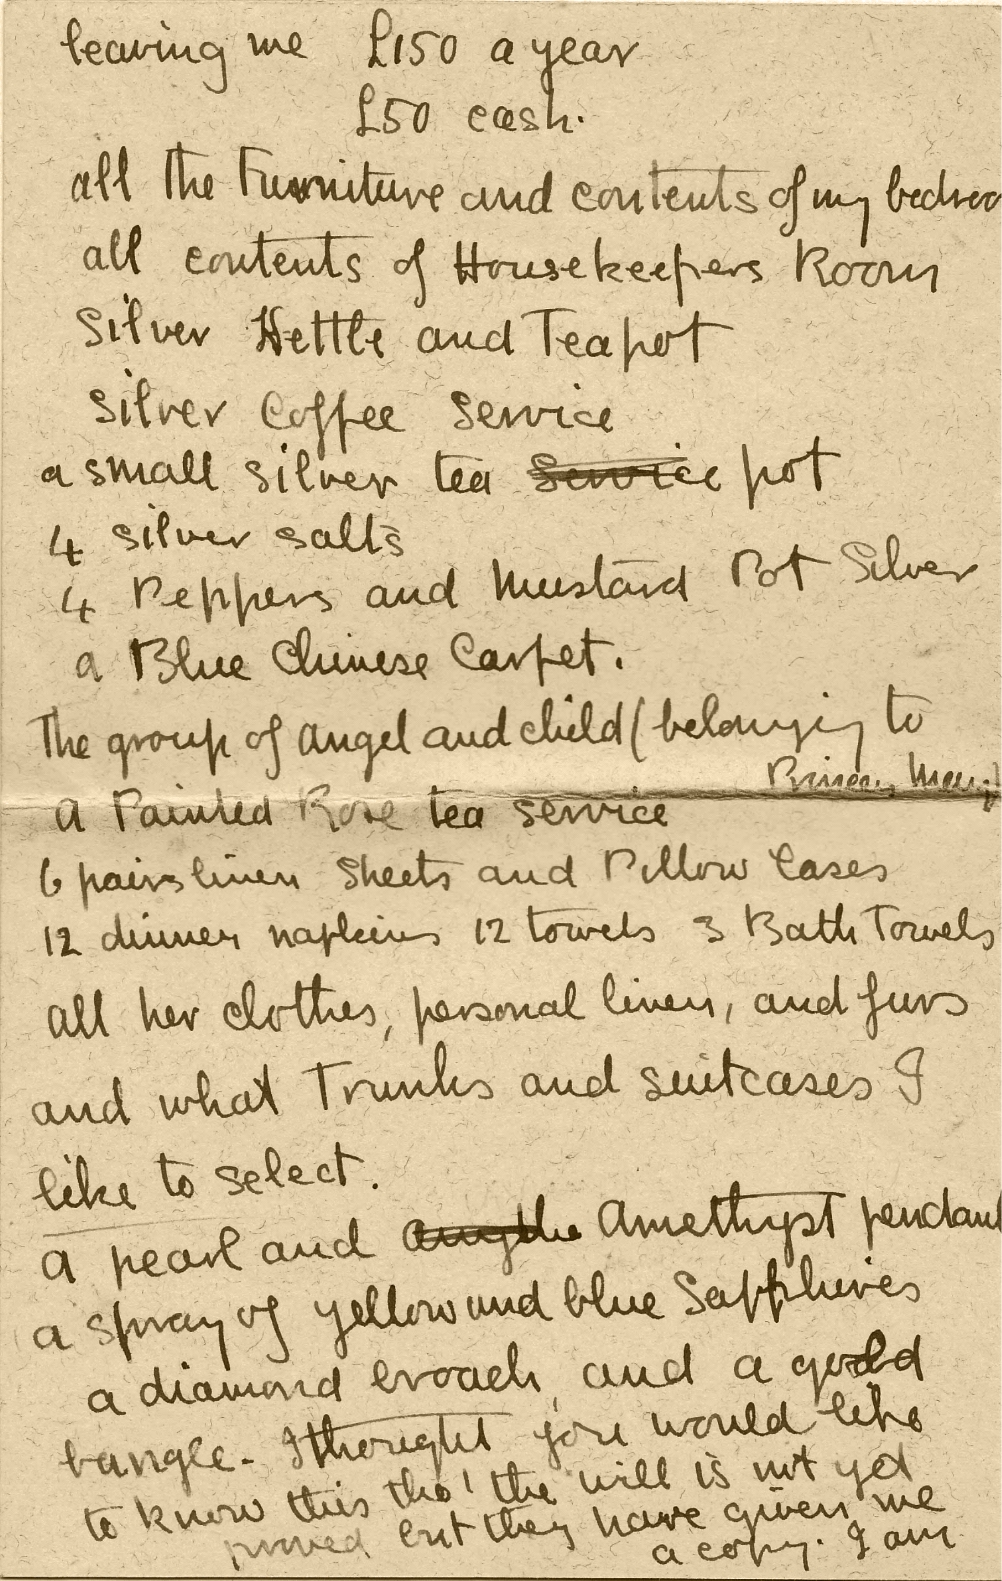 leaving me £150 a year
£50 cash.
all the Furniture and contents of my bedroo
all contents of Housekeepers Room
Silver Kettle and Teapot
Silver Coffee Service
a small silver tea Service pot
4 silver salts
4 Peppers and Mustard Pot Silver
a Blue Chinese Carpet.
The group of angel and child (belonging to
Princess Mary)
A Painted Rose tea service
6 pairs linen Sheets and Pillow Cases
12 dinner napkins 12 towels 3 Bath Towels
all her clothes, personal linen, and furs
and what Trunks and suitcases I
like to select.
A pearl and Amethyst pendant
a spray of yellow and blue Sapphires
a diamond broach, and a gold
bangle. I thought you would like
to know this tho' the will is not yet
proved but they have given me
a copy. I am